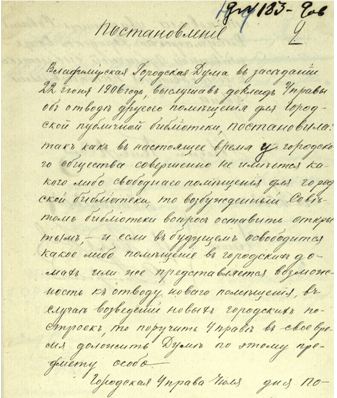 183
Постановленіе
Городская Дума въ засѣданіи
22 іюня 1906 года, выслушавъ докладъ Управы
объ отводѣ другого помѣщенія для Город-
ской публичной библіотеки, постановила:
такъ какъ въ настоящее время у городско-
го общества совершенно не имѣется ка-
кого либо свободнаго помѣщенія для город-
ской библіотеки, то возбужденный Совѣ-
томъ библіотеки вопросъ оставить откры-
тымъ, – и если въ будущемъ освободится
какое либо помѣщеніе въ городскихъ до-
махъ или же представляется возмож-
ность къ отводу новаго помѣщенія, въ
случаѣ возведенія новыхъ городскихъ по-
строекъ, то поручить Управѣ въ свое вре-
мя доложить Думѣ по этому пред-
мету особо
Городская Управа Іюля дня по-